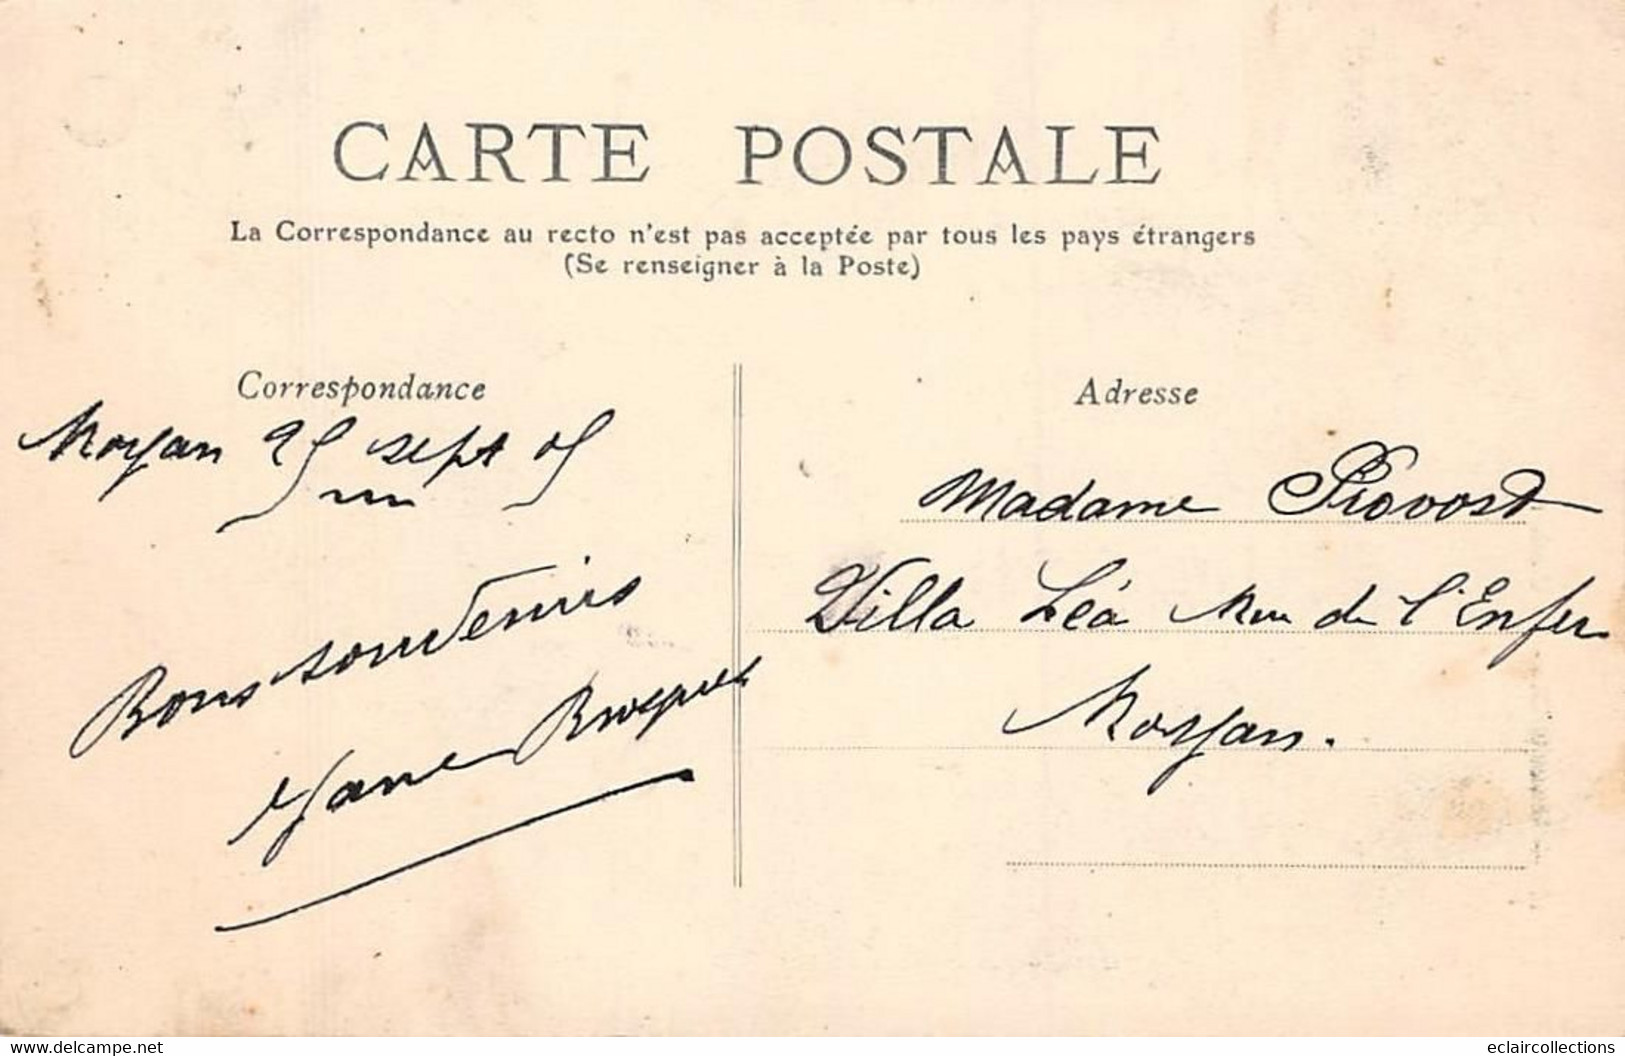 CARTE POSTALE
La Correspondance au recto n'est pas acceptée par tous les pays étrangers
(Se renseigner à la Poste)
Correspondance
Royan 25 sept 05
Bons souvenirs
Jane
Adresse
Madame Provost
Villa Léa Rue de l'Enfer
Royan.
www.delcampe.net
eclaircollections